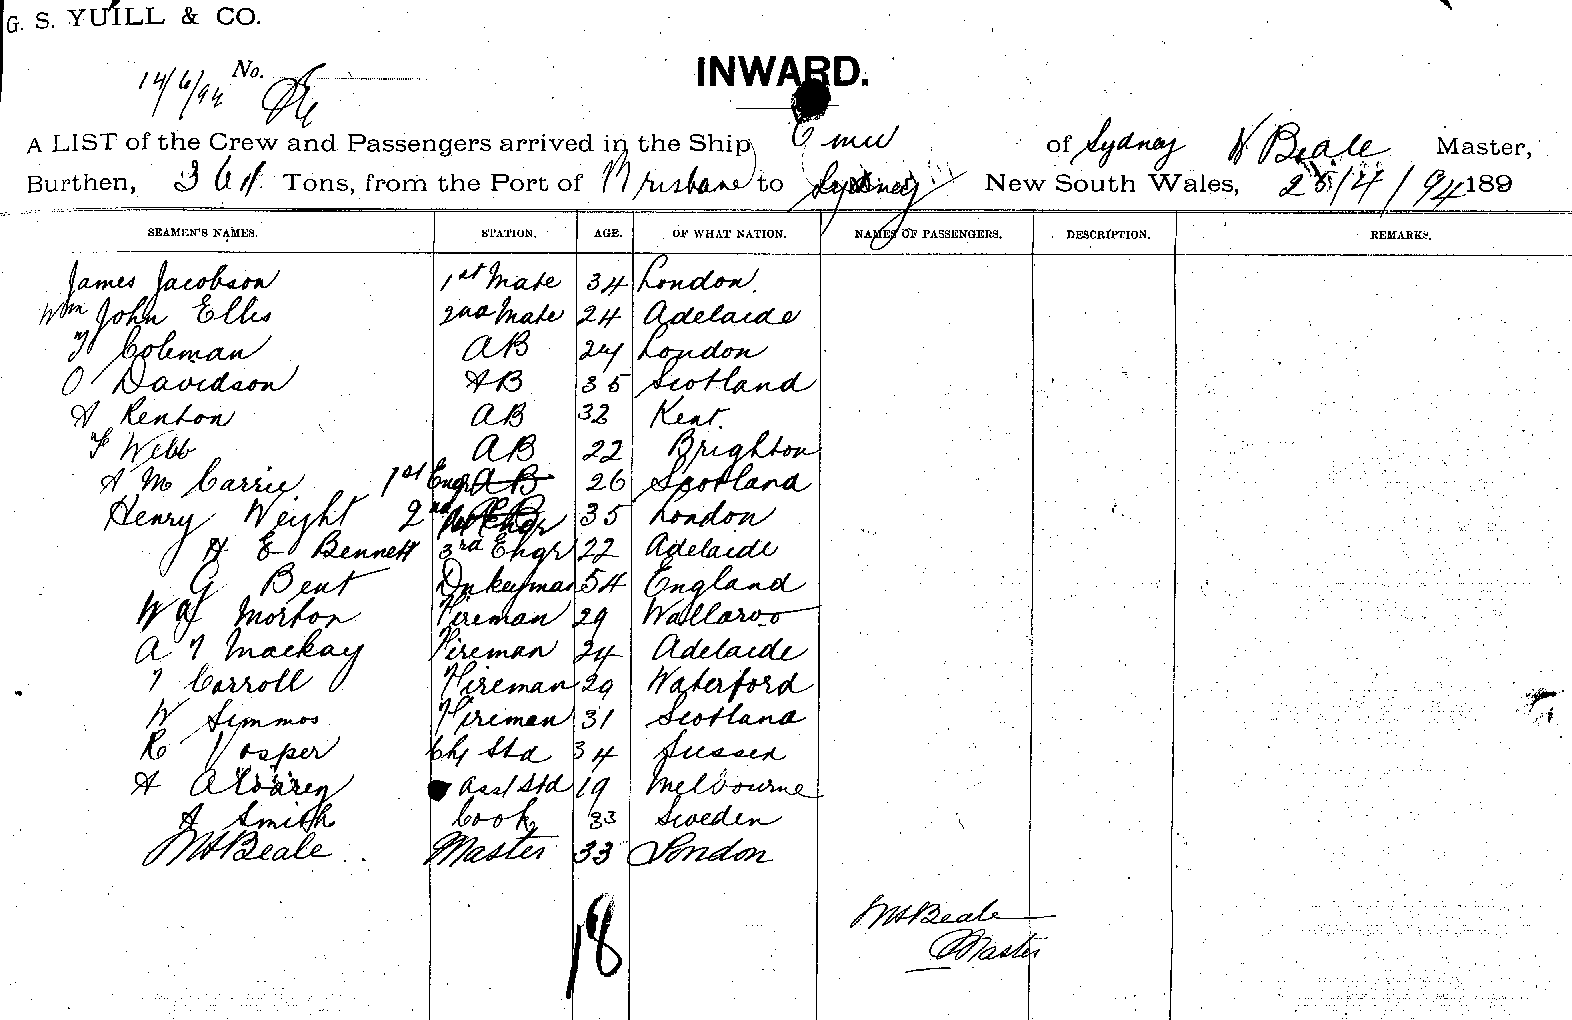 G. S. YUILL & CO.
14/6/94 No.
INWARD.
A LIST of the Crew and Passengers arrived in the Ship Emu of Sydney H Beale Master,
Burthen, 361 Tons, from the Port of Brisbane to Sydney New South Wales, 25/4/94 189
SEAMEN'S NAMES. STATION. AGE. OF WHAT NATION. NAMES OF PASSENGERS. DESCRIPTION. REMARKS.
James Jacobson 1st Mate 34 London.
Wm John Ellis 2nd Mate 24 Adelaide
T Coleman AB 24 London
O Davidson AB 35 Scotland
A Renton AB 32 Kent.
F Webb AB 22 Brighton
A Mc Carrie 1st Engr AB 26 Scotland
Henry Weight 2nd Engr 35 London
H E Bennett 3rd Engr 22 Adelaide
G Bent Dukeyman 54 England
W G Morton Fireman 29 Wallaroo
A T Mackay Fireman 24 Adelaide
T Carroll Fireman 29 Waterford
W Simmos Fireman 31 Scotland
R Vosper Ch Std 34 Sussex
A Asst Std 19 Melbourne
A Smith Cook 33 Sweden
MHBeale Master 33 London
18
MHBeale
Master